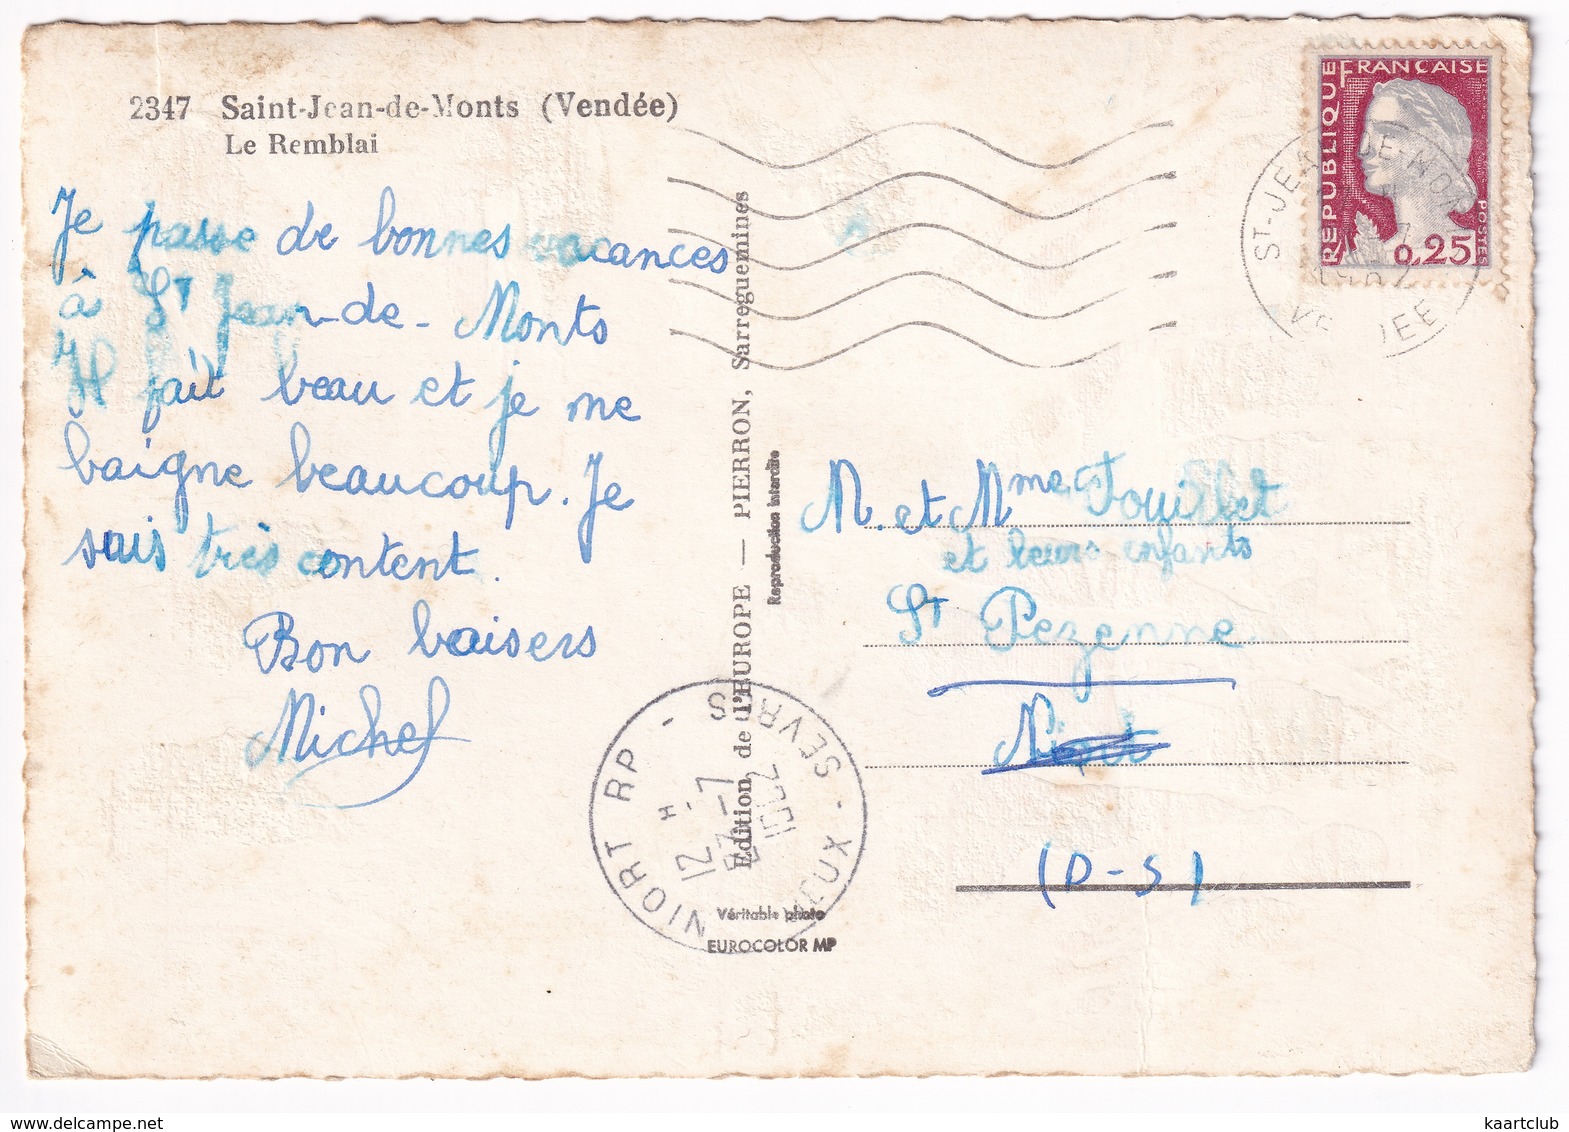 2347 Saint-Jean-de-Monts (Vendée)
Le Remblai
Je passe de bonnes vacances
à St Jean-de-Monts
Il fait beau et je me
baigne beaucoup. Je
suis très content.
Bon baisers
Michel
Edition de l'EUROPE — PIERRON, Sarreguemines
Reproduction interdite
Véritable photo
EUROCOLOR MP
REPUBLIQUE FRANÇAISE
POSTES
0,25
ST-JEAN-DE-MONTS
VENDEE
M. et Mme Fouillet
et leurs enfants
St Pezenne
Niort
(D-S)
NIORT RP - DEUX-SEVRES
12 H
-7